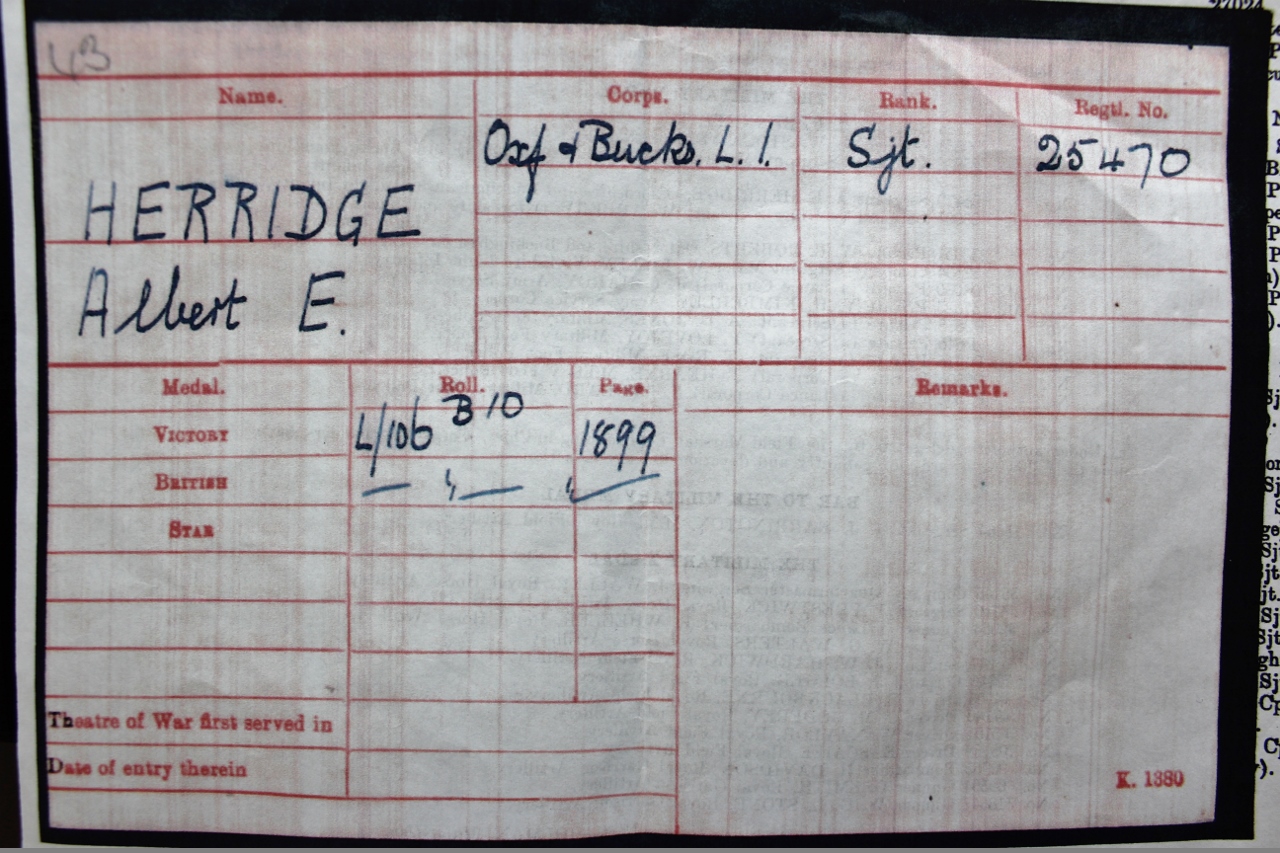 43
Name. Corps. Rank. Regtl. No.
Oxf & Bucks. L. I. Sjt. 25470
HERRIDGE
Albert E.
Medal. Roll. Page. Remarks.
VICTORY L/106 B10 1899
BRITISH — " — " —
STAR
Theatre of War first served in
Date of entry therein
K. 1380